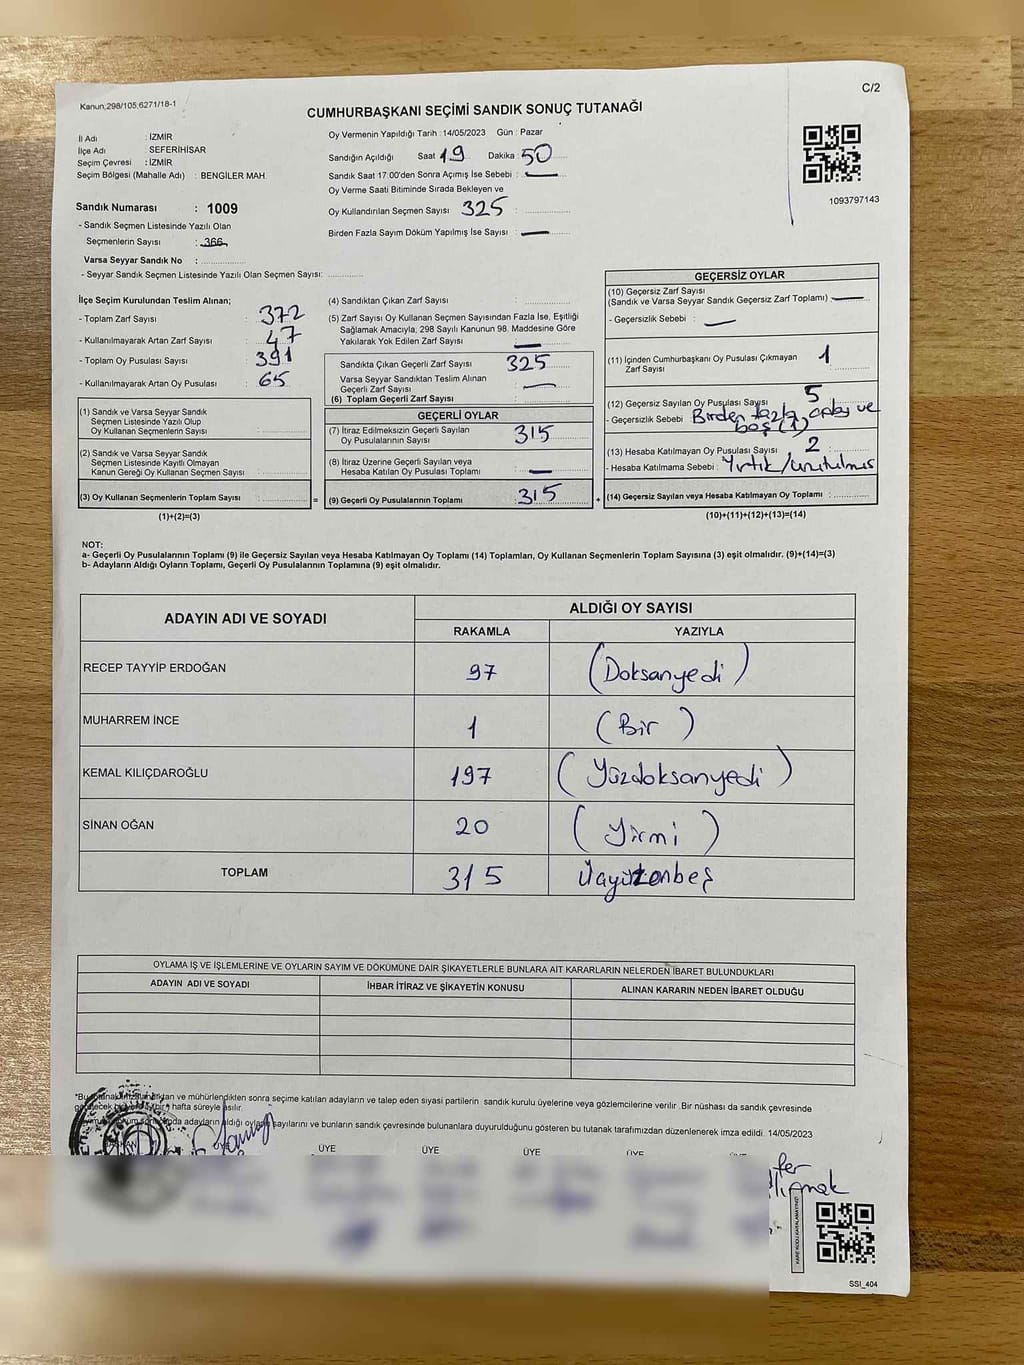 Kanun;298/105;6271/18-1
C/2
CUMHURBAŞKANI SEÇİMİ SANDIK SONUÇ TUTANAĞI
İl Adı : İZMİR
İlçe Adı : SEFERİHİSAR
Seçim Çevresi : İZMİR
Seçim Bölgesi (Mahalle Adı) : BENGİLER MAH.
Sandık Numarası : 1009
- Sandık Seçmen Listesinde Yazılı Olan
Seçmenlerin Sayısı : 366
Varsa Seyyar Sandık No :
- Seyyar Sandık Seçmen Listesinde Yazılı Olan Seçmen Sayısı:
Oy Vermenin Yapıldığı Tarih : 14/05/2023 Gün : Pazar
Sandığın Açıldığı Saat 19 Dakika 50
Sandık Saat 17:00'den Sonra Açımış İse Sebebi : —
Oy Verme Saati Bitiminde Sırada Bekleyen ve
Oy Kullandırılan Seçmen Sayısı 325
Birden Fazla Sayım Döküm Yapılmış İse Sayısı : —
1093797143
İlçe Seçim Kurulundan Teslim Alınan;
- Toplam Zarf Sayısı : 372
- Kullanılmayarak Artan Zarf Sayısı : 47
- Toplam Oy Pusulası Sayısı : 391
- Kullanılmayarak Artan Oy Pusulası : 65
(1) Sandık ve Varsa Seyyar Sandık
Seçmen Listesinde Yazılı Olup
Oy Kullanan Seçmenlerin Sayısı :
(2) Sandık ve Varsa Seyyar Sandık
Seçmen Listesinde Kayıtlı Olmayan
Kanun Gereği Oy Kullanan Seçmen Sayısı :
(3) Oy Kullanan Seçmenlerin Toplam Sayısı :
(1)+(2)=(3)
(4) Sandıktan Çıkan Zarf Sayısı :
(5) Zarf Sayısı Oy Kullanan Seçmen Sayısından Fazla İse, Eşitliği
Sağlamak Amacıyla, 298 Sayılı Kanunun 98. Maddesine Göre
Yakılarak Yok Edilen Zarf Sayısı : —
Sandıkta Çıkan Geçerli Zarf Sayısı : 325
Varsa Seyyar Sandıktan Teslim Alınan
Geçerli Zarf Sayısı : —
(6) Toplam Geçerli Zarf Sayısı :
GEÇERLİ OYLAR
(7) İtiraz Edilmeksizin Geçerli Sayılan
Oy Pusulalarının Sayısı : 315
(8) İtiraz Üzerine Geçerli Sayılan veya
Hesaba Katılan Oy Pusulası Toplamı : —
= (9) Geçerli Oy Pusulalarının Toplamı : 315 +
GEÇERSİZ OYLAR
(10) Geçersiz Zarf Sayısı
(Sandık ve Varsa Seyyar Sandık Geçersiz Zarf Toplamı) : —
- Geçersizlik Sebebi : —
(11) İçinden Cumhurbaşkanı Oy Pusulası Çıkmayan
Zarf Sayısı : 1
(12) Geçersiz Sayılan Oy Pusulası Sayısı : 5
- Geçersizlik Sebebi : Birden fazla ve
boş (1)
(13) Hesaba Katılmayan Oy Pusulası Sayısı : 2
- Hesaba Katılmama Sebebi : Yırtık/unutulmuş
(14) Geçersiz Sayılan veya Hesaba Katılmayan Oy Toplamı :
(10)+(11)+(12)+(13)=(14)
NOT:
a- Geçerli Oy Pusulalarının Toplamı (9) ile Geçersiz Sayılan veya Hesaba Katılmayan Oy Toplamı (14) Toplamları, Oy Kullanan Seçmenlerin Toplam Sayısına (3) eşit olmalıdır. (9)+(14)=(3)
b- Adayların Aldığı Oyların Toplamı, Geçerli Oy Pusulalarının Toplamına (9) eşit olmalıdır.
ADAYIN ADI VE SOYADI
ALDIĞI OY SAYISI
RAKAMLA YAZIYLA
RECEP TAYYİP ERDOĞAN 97 (Doksanyedi)
MUHARREM İNCE 1 (Bir)
KEMAL KILIÇDAROĞLU 197 (Yüzdoksanyedi)
SİNAN OĞAN 20 (Yirmi)
TOPLAM 315 Üçyüzonbeş
OYLAMA İŞ VE İŞLEMLERİNE VE OYLARIN SAYIM VE DÖKÜMÜNE DAİR ŞİKAYETLERLE BUNLARA AİT KARARLARIN NELERDEN İBARET BULUNDUKLARI
ADAYIN ADI VE SOYADI İHBAR İTİRAZ VE ŞİKAYETİN KONUSU ALINAN KARARIN NEDEN İBARET OLDUĞU
ve mühürlendikten sonra seçime katılan adayların ve talep eden siyasi partilerin sandık kurulu üyelerine veya gözlemcilerine verilir .Bir nüshası da sandık çevresinde
hafta süreyle asılır.
adayların aldığı oyların sayılarını ve bunların sandık çevresinde bulunanlara duyurulduğunu gösteren bu tutanak tarafımızdan düzenlenerek imza edildi. 14/05/2023
ÜYE ÜYE ÜYE ÜYE ÜYE
SSİ_404